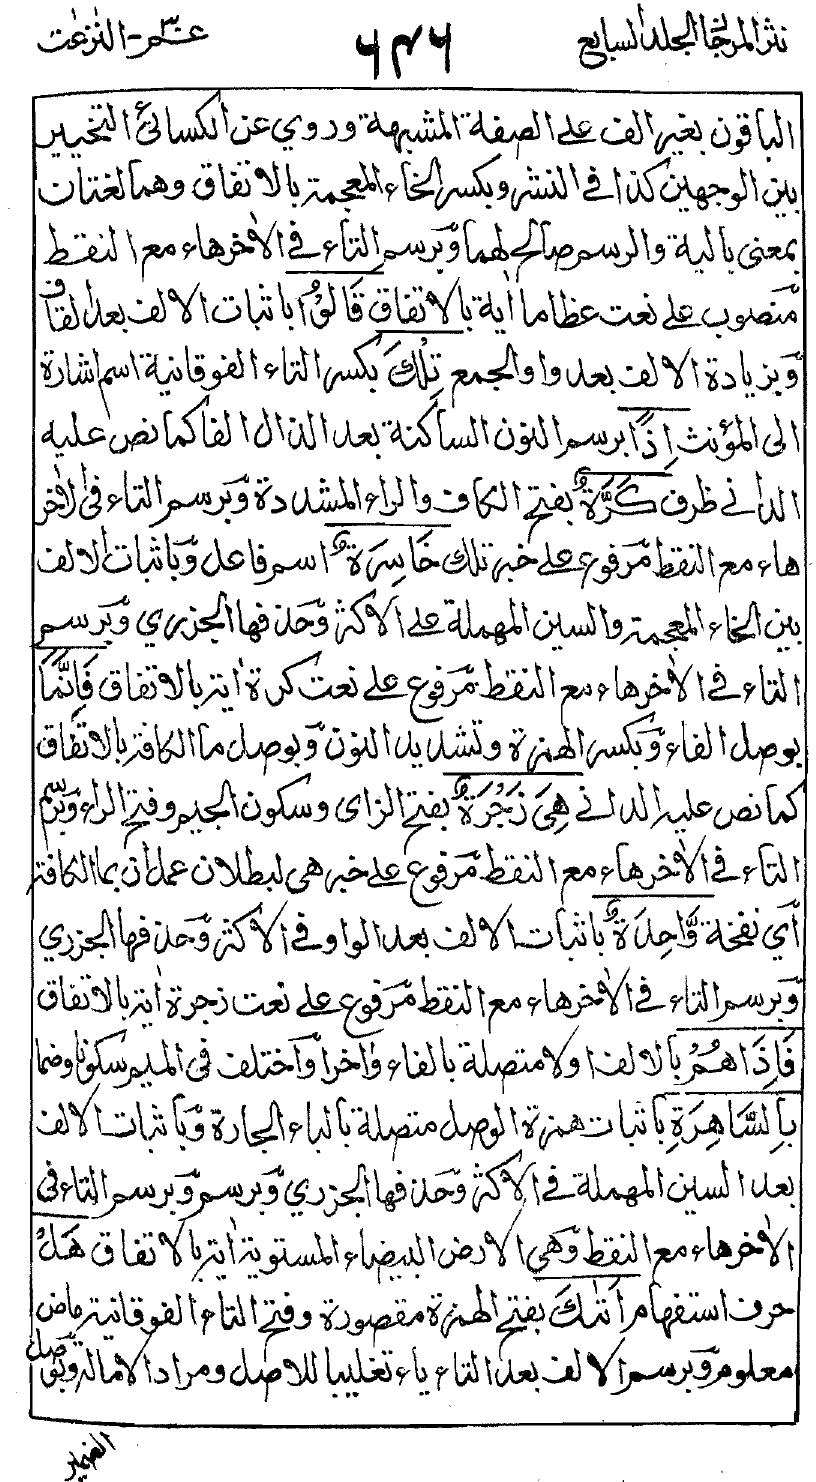 نثر المرجان الجلد السابع ٦٤٦ عمّ - النّٰزعٰت
الباقون بغير الف على الصفة المشبهة وروي عن الكسائي التخيير
بين الوجهين كذا في النشر وبكسر الخاء المعجمة بالاتفاق وهما لغتان
بمعنى بالية والرسم صالح لهما وَبرسم التاء في الاٰخرهاء مع النقط
مَنصوب على نعت عظاما اٰية بالاتفاق قَالُوْا باثبات الالف بعد القاف
وَبزيادة الالف بعد واو الجمع تِلْكَ بكسر التاء الفوقانية اسم اشارة
الى المؤنث اِذًا برسم النون الساكنة بعد الذال الفا كما نص عليه
الداني ظرف كَرَّةٌ بفتح الكاف والراء المشددة وَبرسم التاء في الاٰخر
هاء مع النقط مَرفوع على خبر تلك خَاسِرَةٌ اسم فاعل وَباثبات الالف
بين الخاء المعجمة والسين المهملة على الاكثر وَحذفها الجزري وَبرسم
التاء في الاٰخرهاء مع النقط مَرفوع على نعت كرة اٰية بالاتفاق فَاِنَّمَا
بوصل الفاء وَبكسر الهمزة وتشديد النون وَبوصل ما الكافة بالاتفاق
كما نص عليه الداني هِيَ زَجْرَةٌ بفتح الزاى وسكون الجيم وفتح الراء وَبرسم
التاء في الاٰخرهاء مع النقط مَرفوع على خبر هي لبطلان عمل ان بما الكافة
أي نفخة وَّاحِدَةٌ باثبات الالف بعد الواو في الاكثر وَحذفها الجزري
وَبرسم التاء في الاٰخرهاء مع النقط مَرفوع على نعت زجرة اٰية بالاتفاق
فَاِذَا هُمْ بالالف اولا متصلة بالفاء وَاٰخرا وَاختلف في الميم سكونا وضما
بِالسَّاهِرَةِ باثبات همزة الوصل متصلة بالباء الجارة وَباثبات الالف
بعد السين المهملة في الاكثر وَحذفها الجزري وَبرسم وَبرسم التاء في
الاٰخرهاء مع النقط وَهي الارض البيضاء المستوية اٰية بالاتفاق هَلْ
حرف استفهام اَتٰىكَ بفتح الهمزة مقصورة وفتح التاء الفوقانية ماض
معلوم وَبرسم الالف بعد التاء ياء تغليبا للاصل ومراد الامالة وَبوصل
الضمير